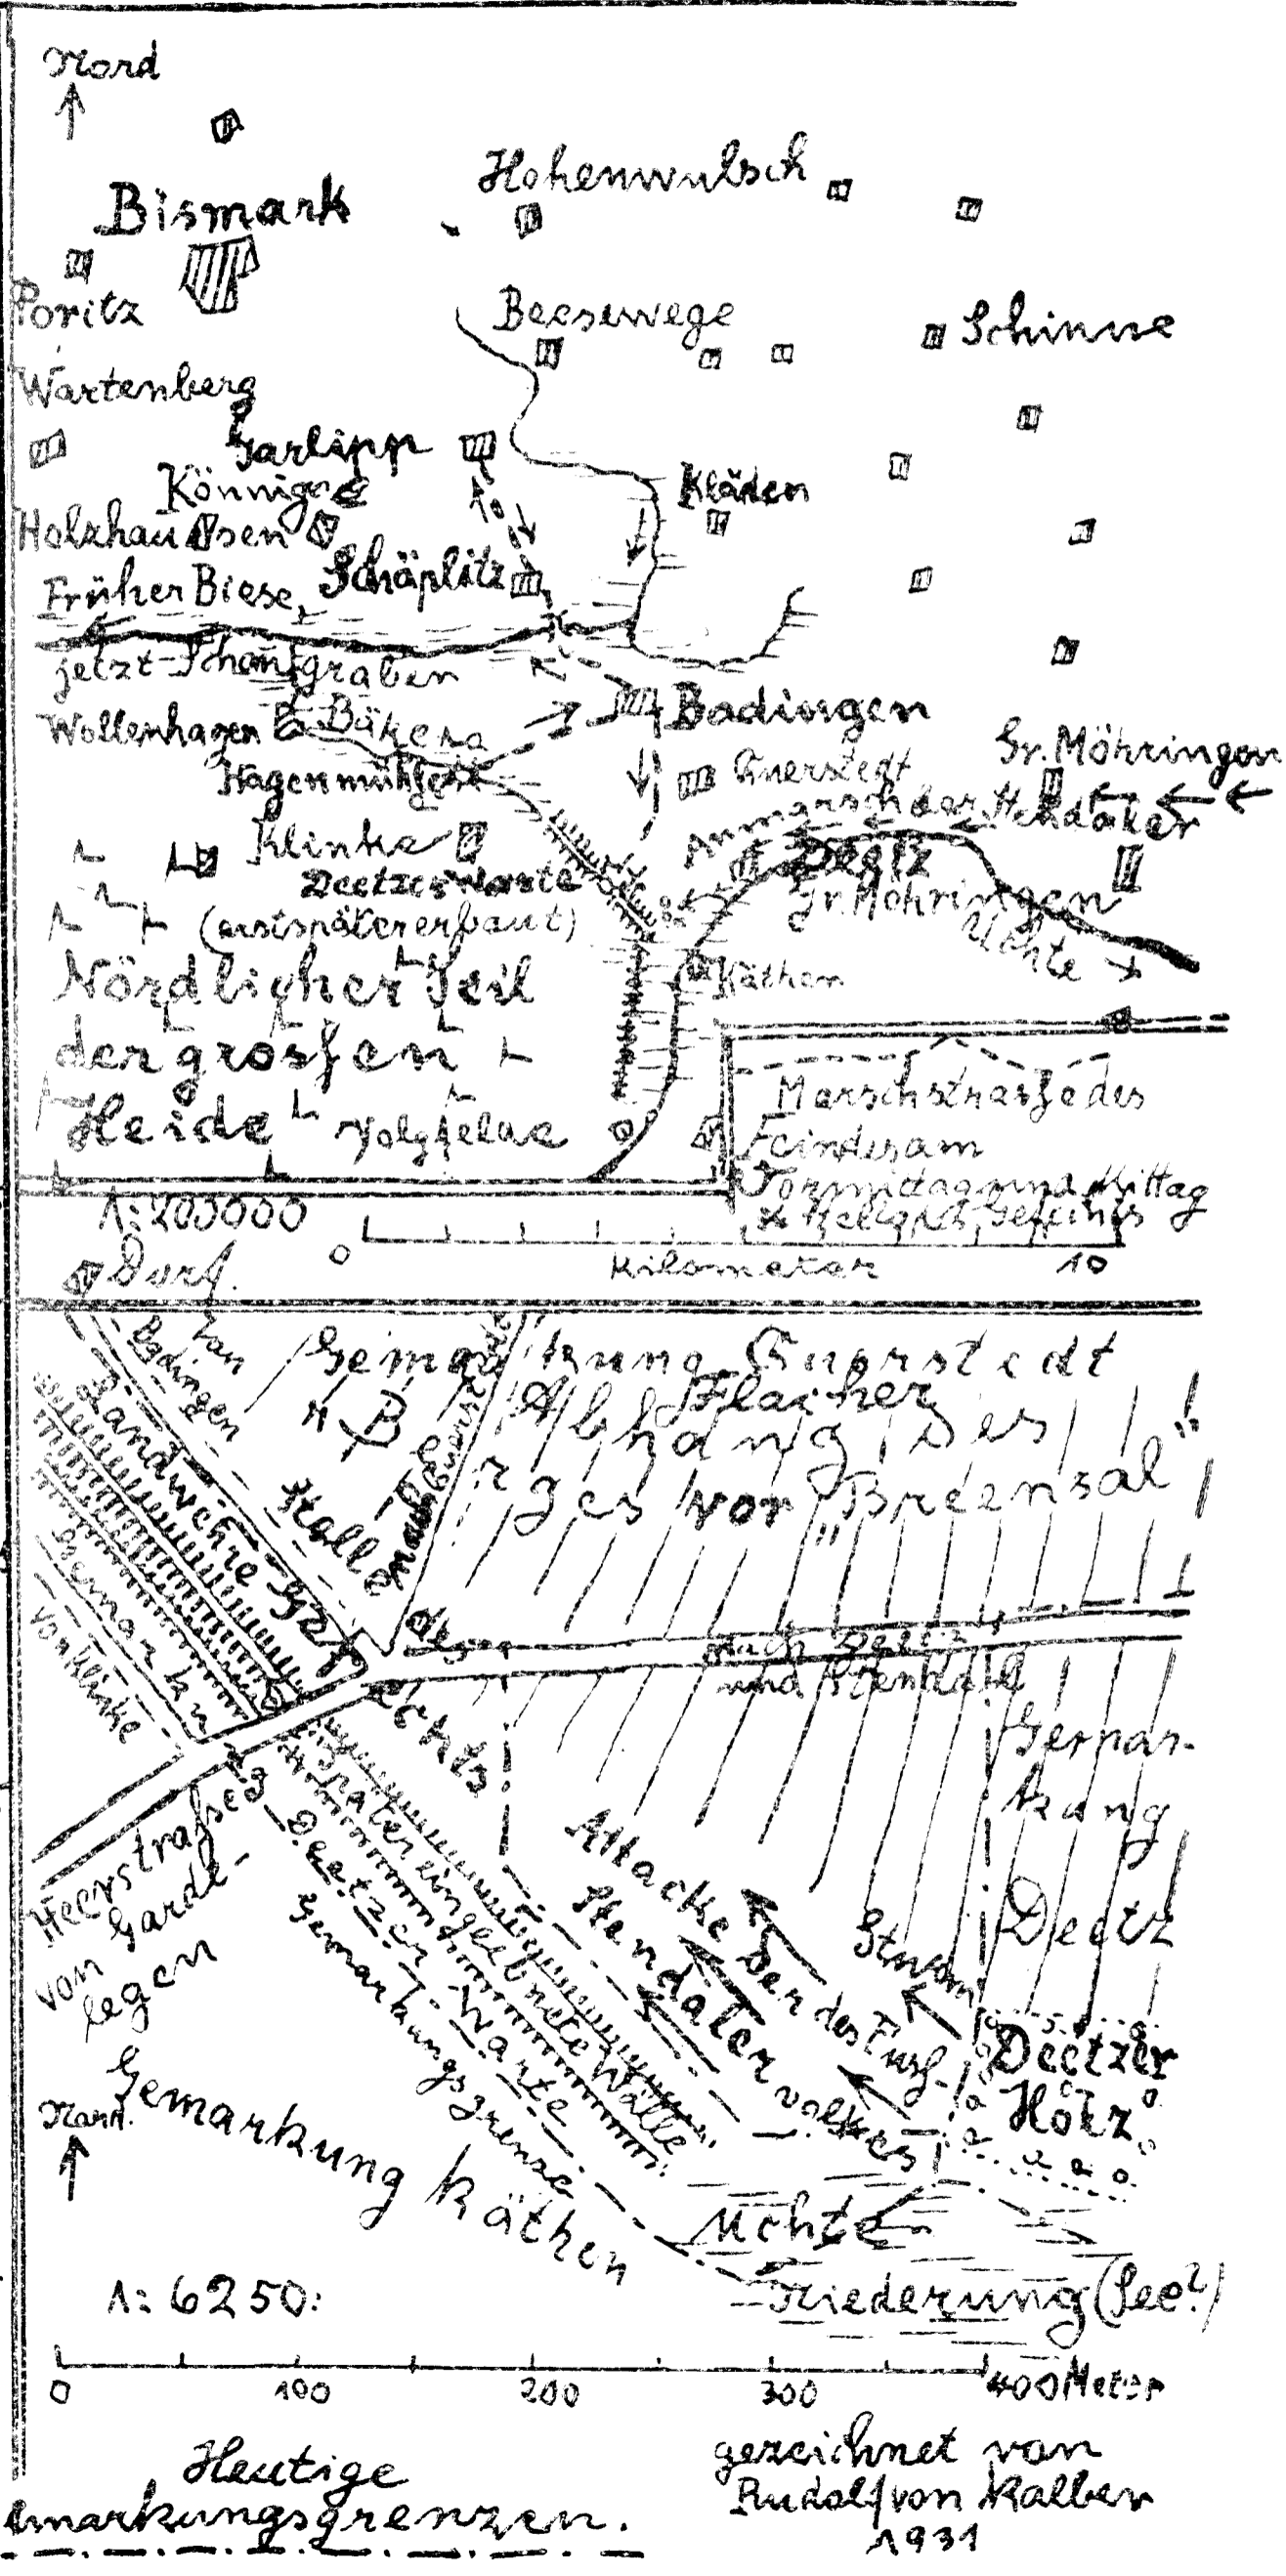 Nord
Hohenwulsch
Bismark
Poritz
Beesewege
Schinne
Wartenberg
Garlipp
Könnigde
Kläden
Holzhausen
Schäplitz
Früher Biese,
jetzt
graben
Badingen
Wollenhagen
Bäkena
Gr. Möhringen
Hagenmühle
Querstedt
Anmarsch der Stendaler
Klinke
Deetz
Deetzer Warte
Gr. Möhringen
(erst später erbaut)
Uchte
Käthen
Nördlicher Teil
der grossen
Heide
Volgfelde
Marschstrasse des
Feindes am
Vormittag und Mittag
des Gefechts
1:203000
0
Kilometer
10
Dorf.
von
Badingen
Gemarkung Querstedt
Flacher
Abhang des
"Berges vor Breensal"
Landwehre
nach
Stelle des
Gefechts
nach Deetz
und Stendal
Gemarkung
von Klinke
Gemar-
kung
Deetz
Heerstrasse
von Garde-
legen
später eingeebnete Wälle
Deetzer Warte
Gemarkungsgrenze
Attacke der
Stendaler
Sturm
des Fussvolkes
Deetzer
Holz
Nord.
Gemarkung Käthen
Uchte
Niederung (See?)
1:6250:
0 100 200 300 400 Meter
Heutige
emarkungsgrenzen.
gezeichnet von
Rudolf von Kalben
1931